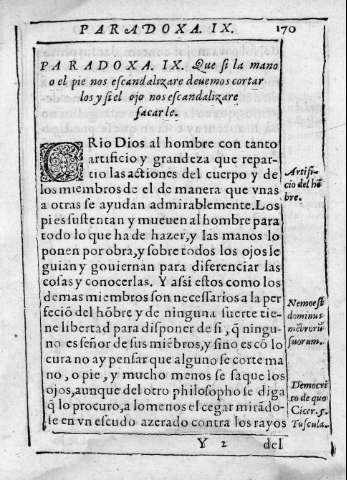 PARADOXA. IX. 170
PARADOXA. IX. Que si la mano
o el pie nos escandalizare deuemos cortar
los y si el ojo nos escandalizare
sacarle.
CRio Dios al hombre con tanto
artificio y grandeza que repar-
tio las actiones del cuerpo y de
los miembros de el de manera que vnas
a otras se ayudan admirablemente. Los
pies sustentan y mueuen al hombre para
todo lo que ha de hazer, y las manos lo
ponen por obra, y sobre todos los ojos le
guian y gouiernan para diferenciar las
cosas y conocerlas. Y assi estos como los
demas miembros son necessarios a la per
feciõ del hõbre y de ninguna suerte tie-
ne libertad para disponer de si, q̃ ningu-
no es señor de sus miẽbros, y sino es cõ lo
cura no ay pensar que alguno se corte ma
no, o pie, y mucho menos se saque los
ojos, aunque del otro philosopho se diga
q̃ lo procuro, a lo menos el cegar mirãdo-
se en vn escudo azerado contra los rayos
Y 2 del
Artifi-
cio del hõ
bre.
Nemo est
dominus
mẽbrorũ
suorum.
Democri
to de quo
Cicer. 5.
Tuscula.